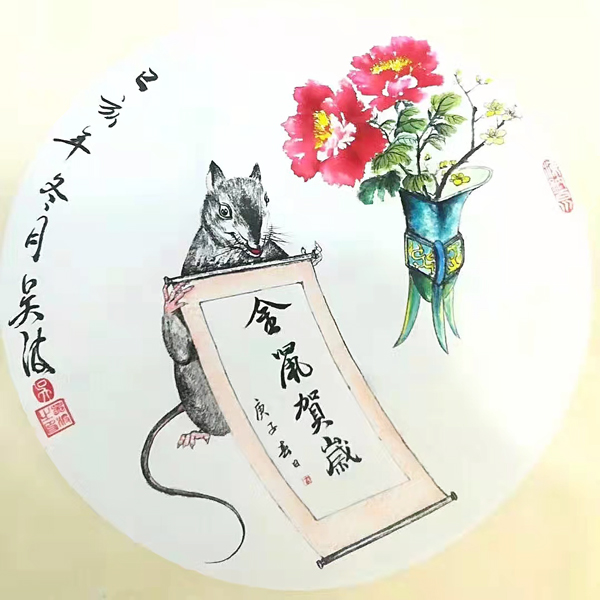 己亥年冬月吴波
金鼠贺歲
庚子春日